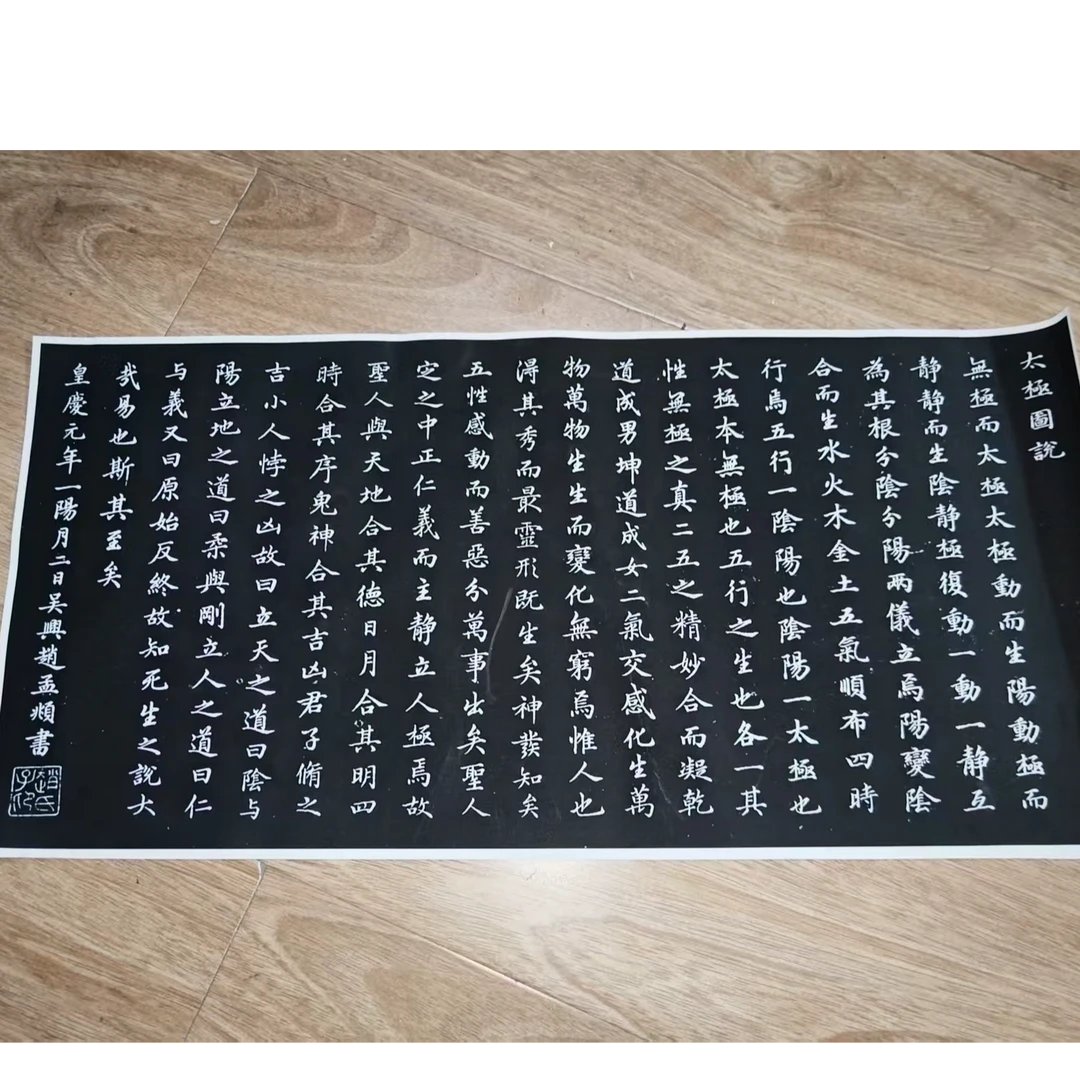 太極圖說
無極而太極太極動而生陽動極而
静静而生陰静極復動一動一静互
為其根分陰分陽兩儀立焉陽變陰
合而生水火木金土五氣順布四時
行焉五行一陰陽也陰陽一太極也
太極本無極也五行之生也各一其
性無極之真二五之精妙合而凝乾
道成男坤道成女二氣交感化生萬
物萬物生生而變化無窮焉惟人也
得其秀而最靈形既生矣神發知矣
五性感動而善惡分萬事出矣聖人
定之中正仁義而主静立人極焉故
聖人與天地合其德日月合其明四
時合其序鬼神合其吉凶君子脩之
吉小人悖之凶故曰立天之道曰陰与
陽立地之道曰柔與剛立人之道曰仁
与義又曰原始反終故知死生之說大
哉易也斯其至矣
皇慶元年一陽月二日吴興趙孟頫書
趙氏子昂